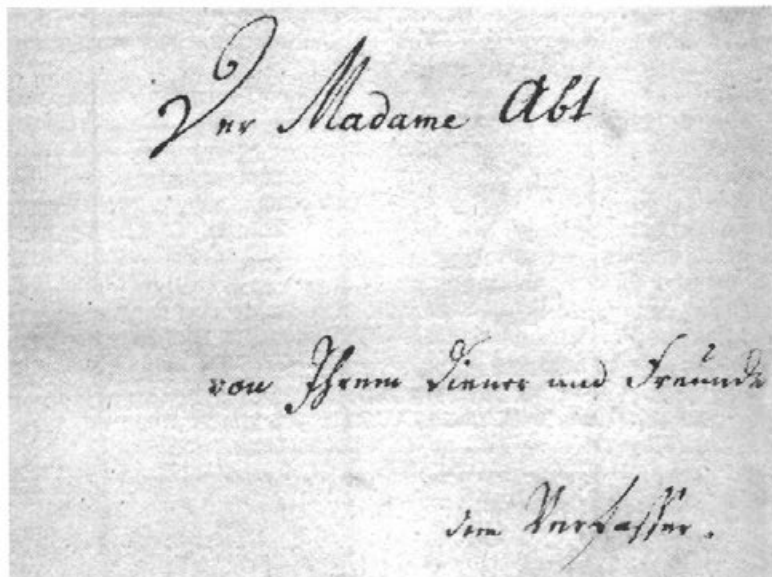 Der Madame Abt
von Ihrem Diener und Freunde
dem Verfasser.